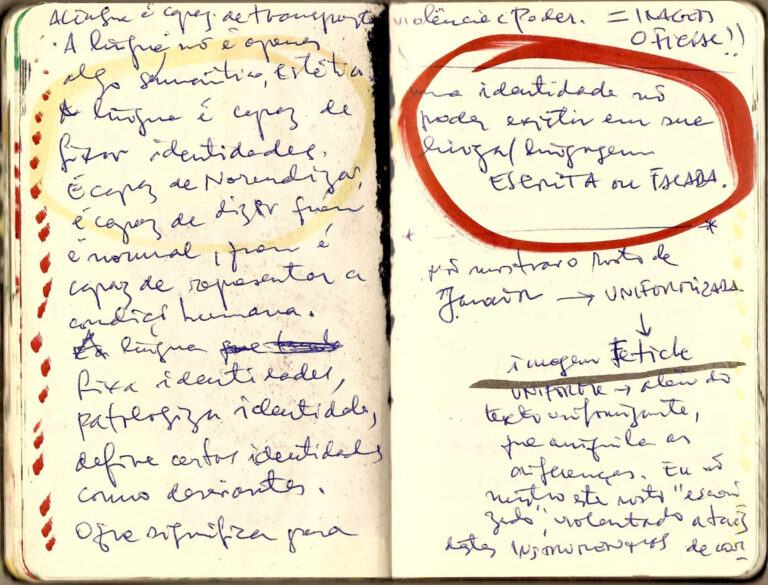 A língua é capaz de transportar
· A língua não é apenas
algo semântico, Estético.
A língua é capaz de
fixar identidades.
É capaz de Normalizar,
é capaz de dizer quem
é normal, quem é
capaz de representar a
condiçã humana.
A língua que
fixa identidades,
patologiza identidade,
define certas identidades
como desviantes.
O que significa para
violência e Poder. = IMAGEM
O FICIAL!)
uma identidade não
poder existir em sua
língua/linguagem
ESCRITA ou FALADA.
*
*
Não mostrar o rosto de
→ UNIFORMIZADA
↓
imagem Fetiche
UNIFORME → além do
texto uniformizante,
que aniquila as
diferenças. Eu não
mostro este rosto "
", violentado através
destes INSTRUMENTOS de